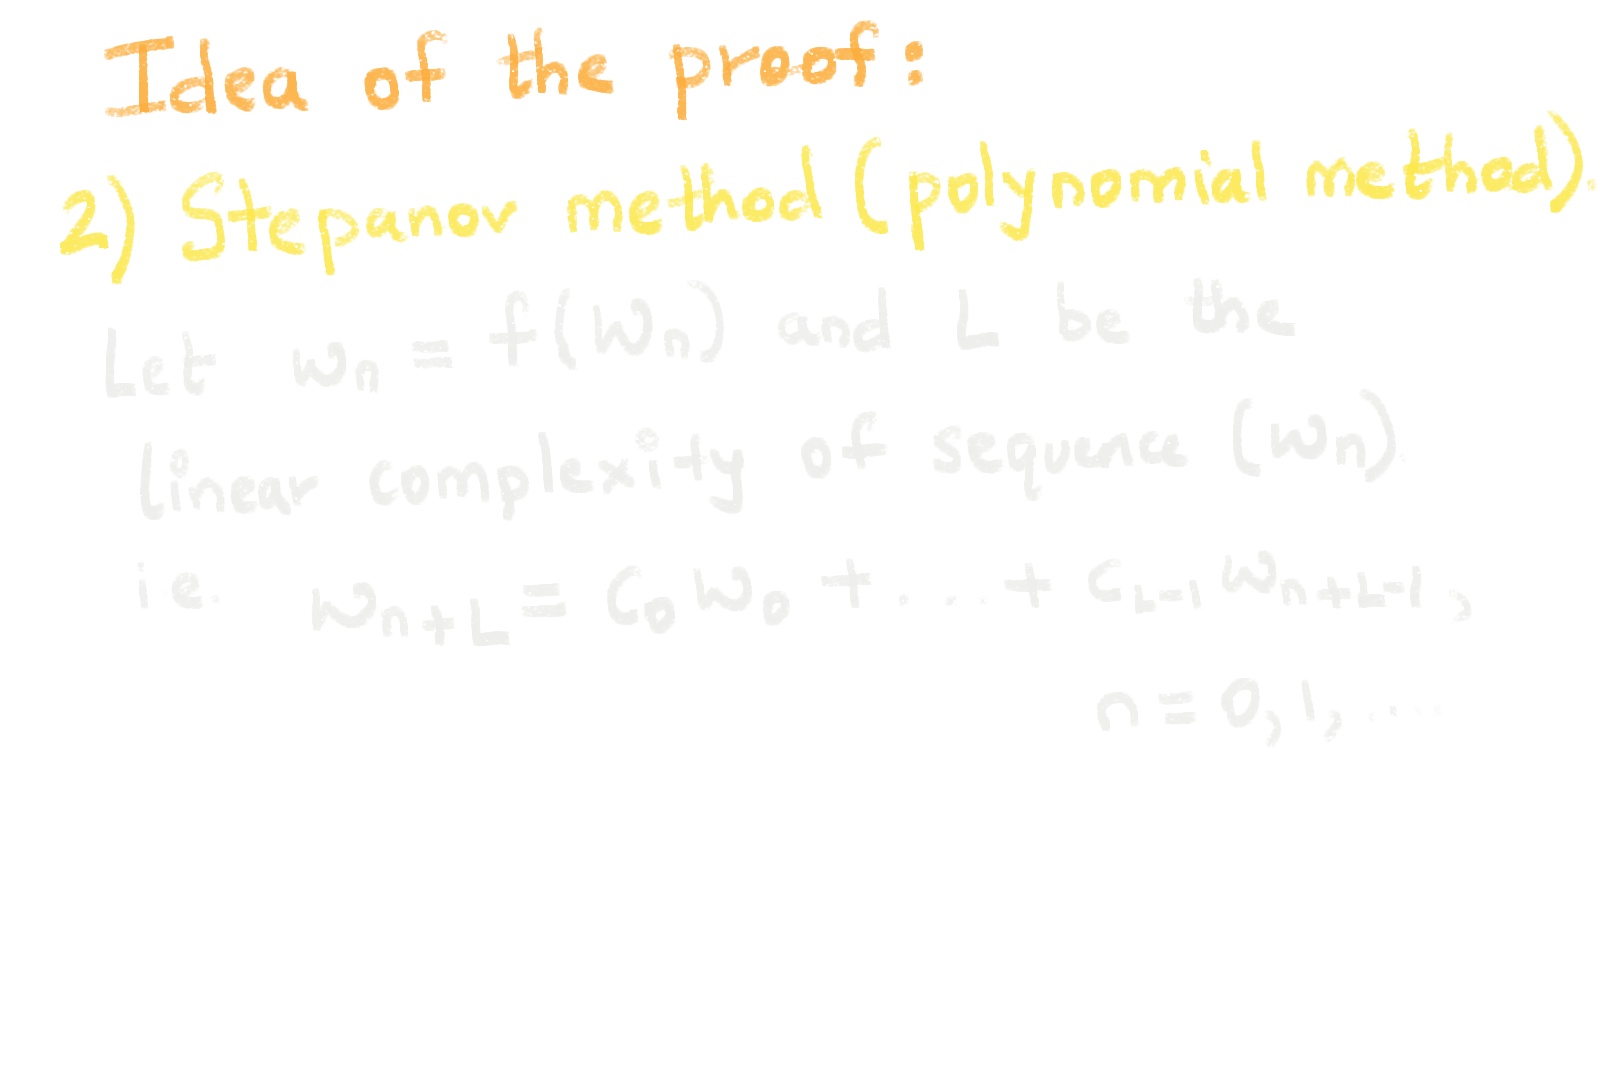 Idea of the proof:
2) Stepanov method (polynomial method).
Let wₙ = f(Wₙ) and L be the
linear complexity of sequence (wₙ)
i.e. wₙ₊L = C₀ W₀ + ... + C_{L-1} W_{n+L-1},
n = 0, 1, ...